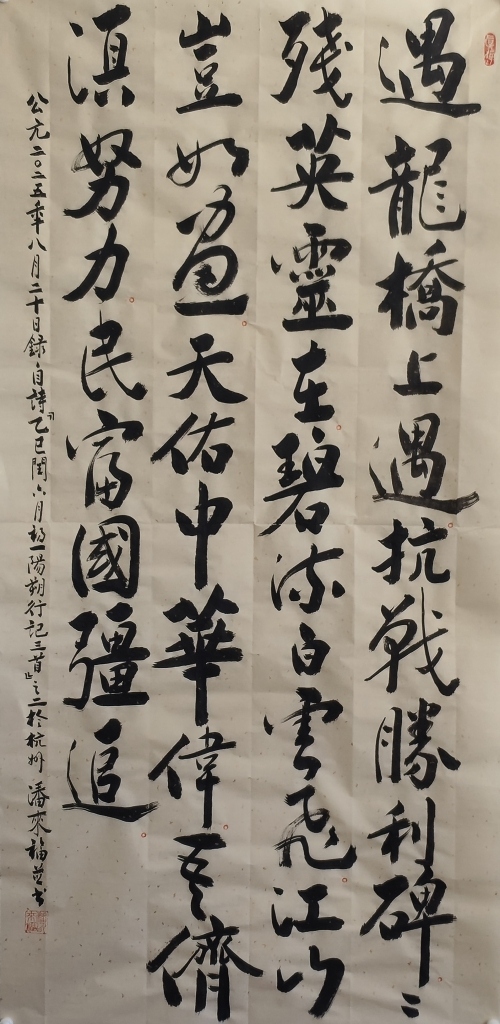 遇龍橋上遇抗戰勝利碑〻
殘英靈在碧流白雲飛江山
豈如畫天佑中華偉吾儕
湏努力民富國彊追
公元二〇二五年八月二十日錄自詩「乙巳閏六月初一陽朔行記三首」之二於杭州 潘來福並書